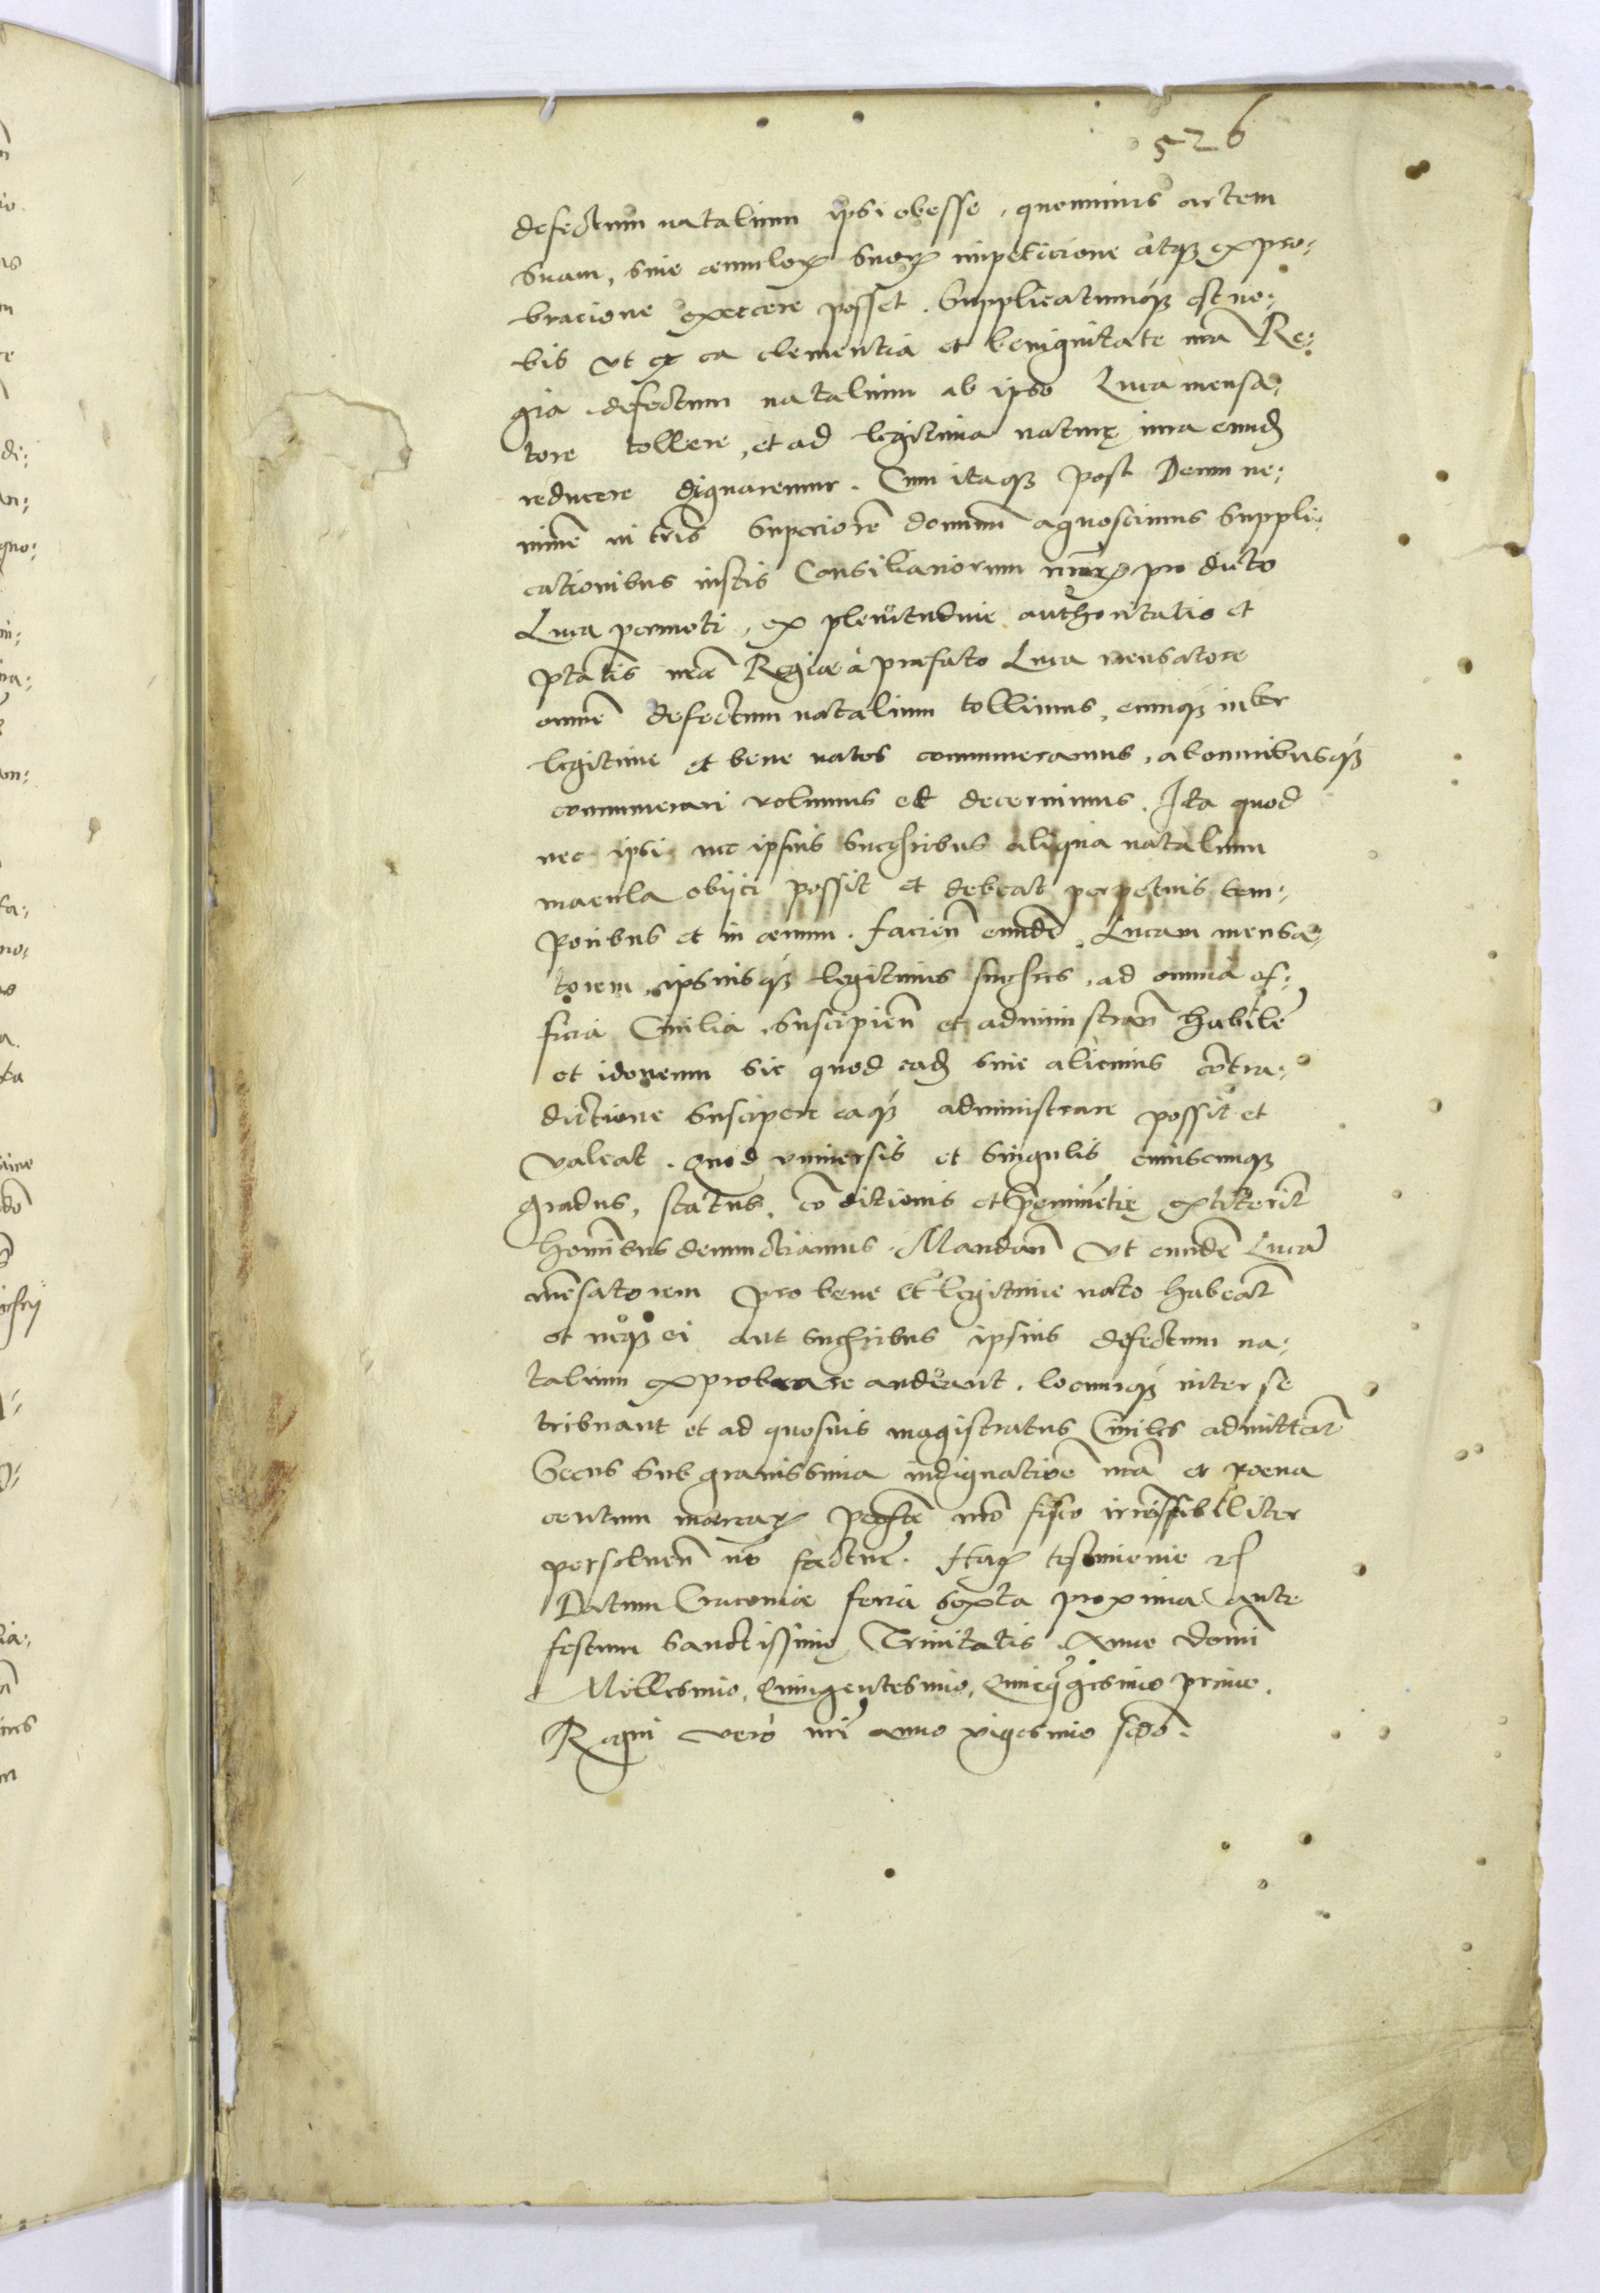 526
defectum natalium ipsi obesse, quominus artem
suam, sine æmulorꝝ suorꝝ impeticione atqꝫ expro-
bracione exercere posset. Supplicatumqꝫ est no-
bis vt ex ea clementia et benignitate nr̄a Re-
gia defectum natalium ab ipso Luca mensa-
tore tollere, et ad legitima naturę iura eund̄
reducere dignaremur. Cum itaqꝫ post Deum ne-
minē in tr̄is superiorē dominū agnoscimus suppli-
cationibus iustis Consiliariorum nr̄orꝝ pro dicto
Luca permoti, ex plenitudine authoritatis et
ptātis nr̄æ Regiæ à præfato Luca mensatore
omnē defectum natalium tollimus, eumqꝫ inter
legitime et bene natos connumeramus, ab omnibusqꝫ
connumerari volumus et decernimus. Ita quod
nec ipsi nec ipsius success̄ribus aliqua natalium
macula obijci possit et debeat perpetuis tem-
poribus et in æuum. facien̄ eundē Lucam mensa-
torem, ipsiusqꝫ legitimos success̄res, ad omnia of-
ficia Ciuilia suscipien̄ et administran̄ habilē
et idoneum sic quod ead̄ sine alicuius cōtra-
dictione suscipere eaqꝫ administrare possit et
valeat. Quod vniuersis et singulis cuiuscunqꝫ
gradus, status, cōditionis et p̄eminētię extiterit
hominibus denunctiamus. Mandan̄ vt eundē Lucā
mēsatorem pro bene et legitime nato habeāt
et neqꝫ ei aut success̄ribus ipsius defectum na-
talium exprobrare audeant, locumqꝫ inter se
tribuant et ad quosuis magistratus Ciuiles admittāt
Secus sub grauissima indignatiōe nr̄a et poena
centum marcarꝝ fisco irremissibiliter
persoluen̄ nō facturi. Harꝝ testimonio
Datum Cracouiæ feria sexta proxima ante
festum sanctissimę Trinitatis. Anno domi
Millesimo, Quingentesimo, Quinqgesimo primo.
Regni verò nr̄i anno vigesimo scd̄o.